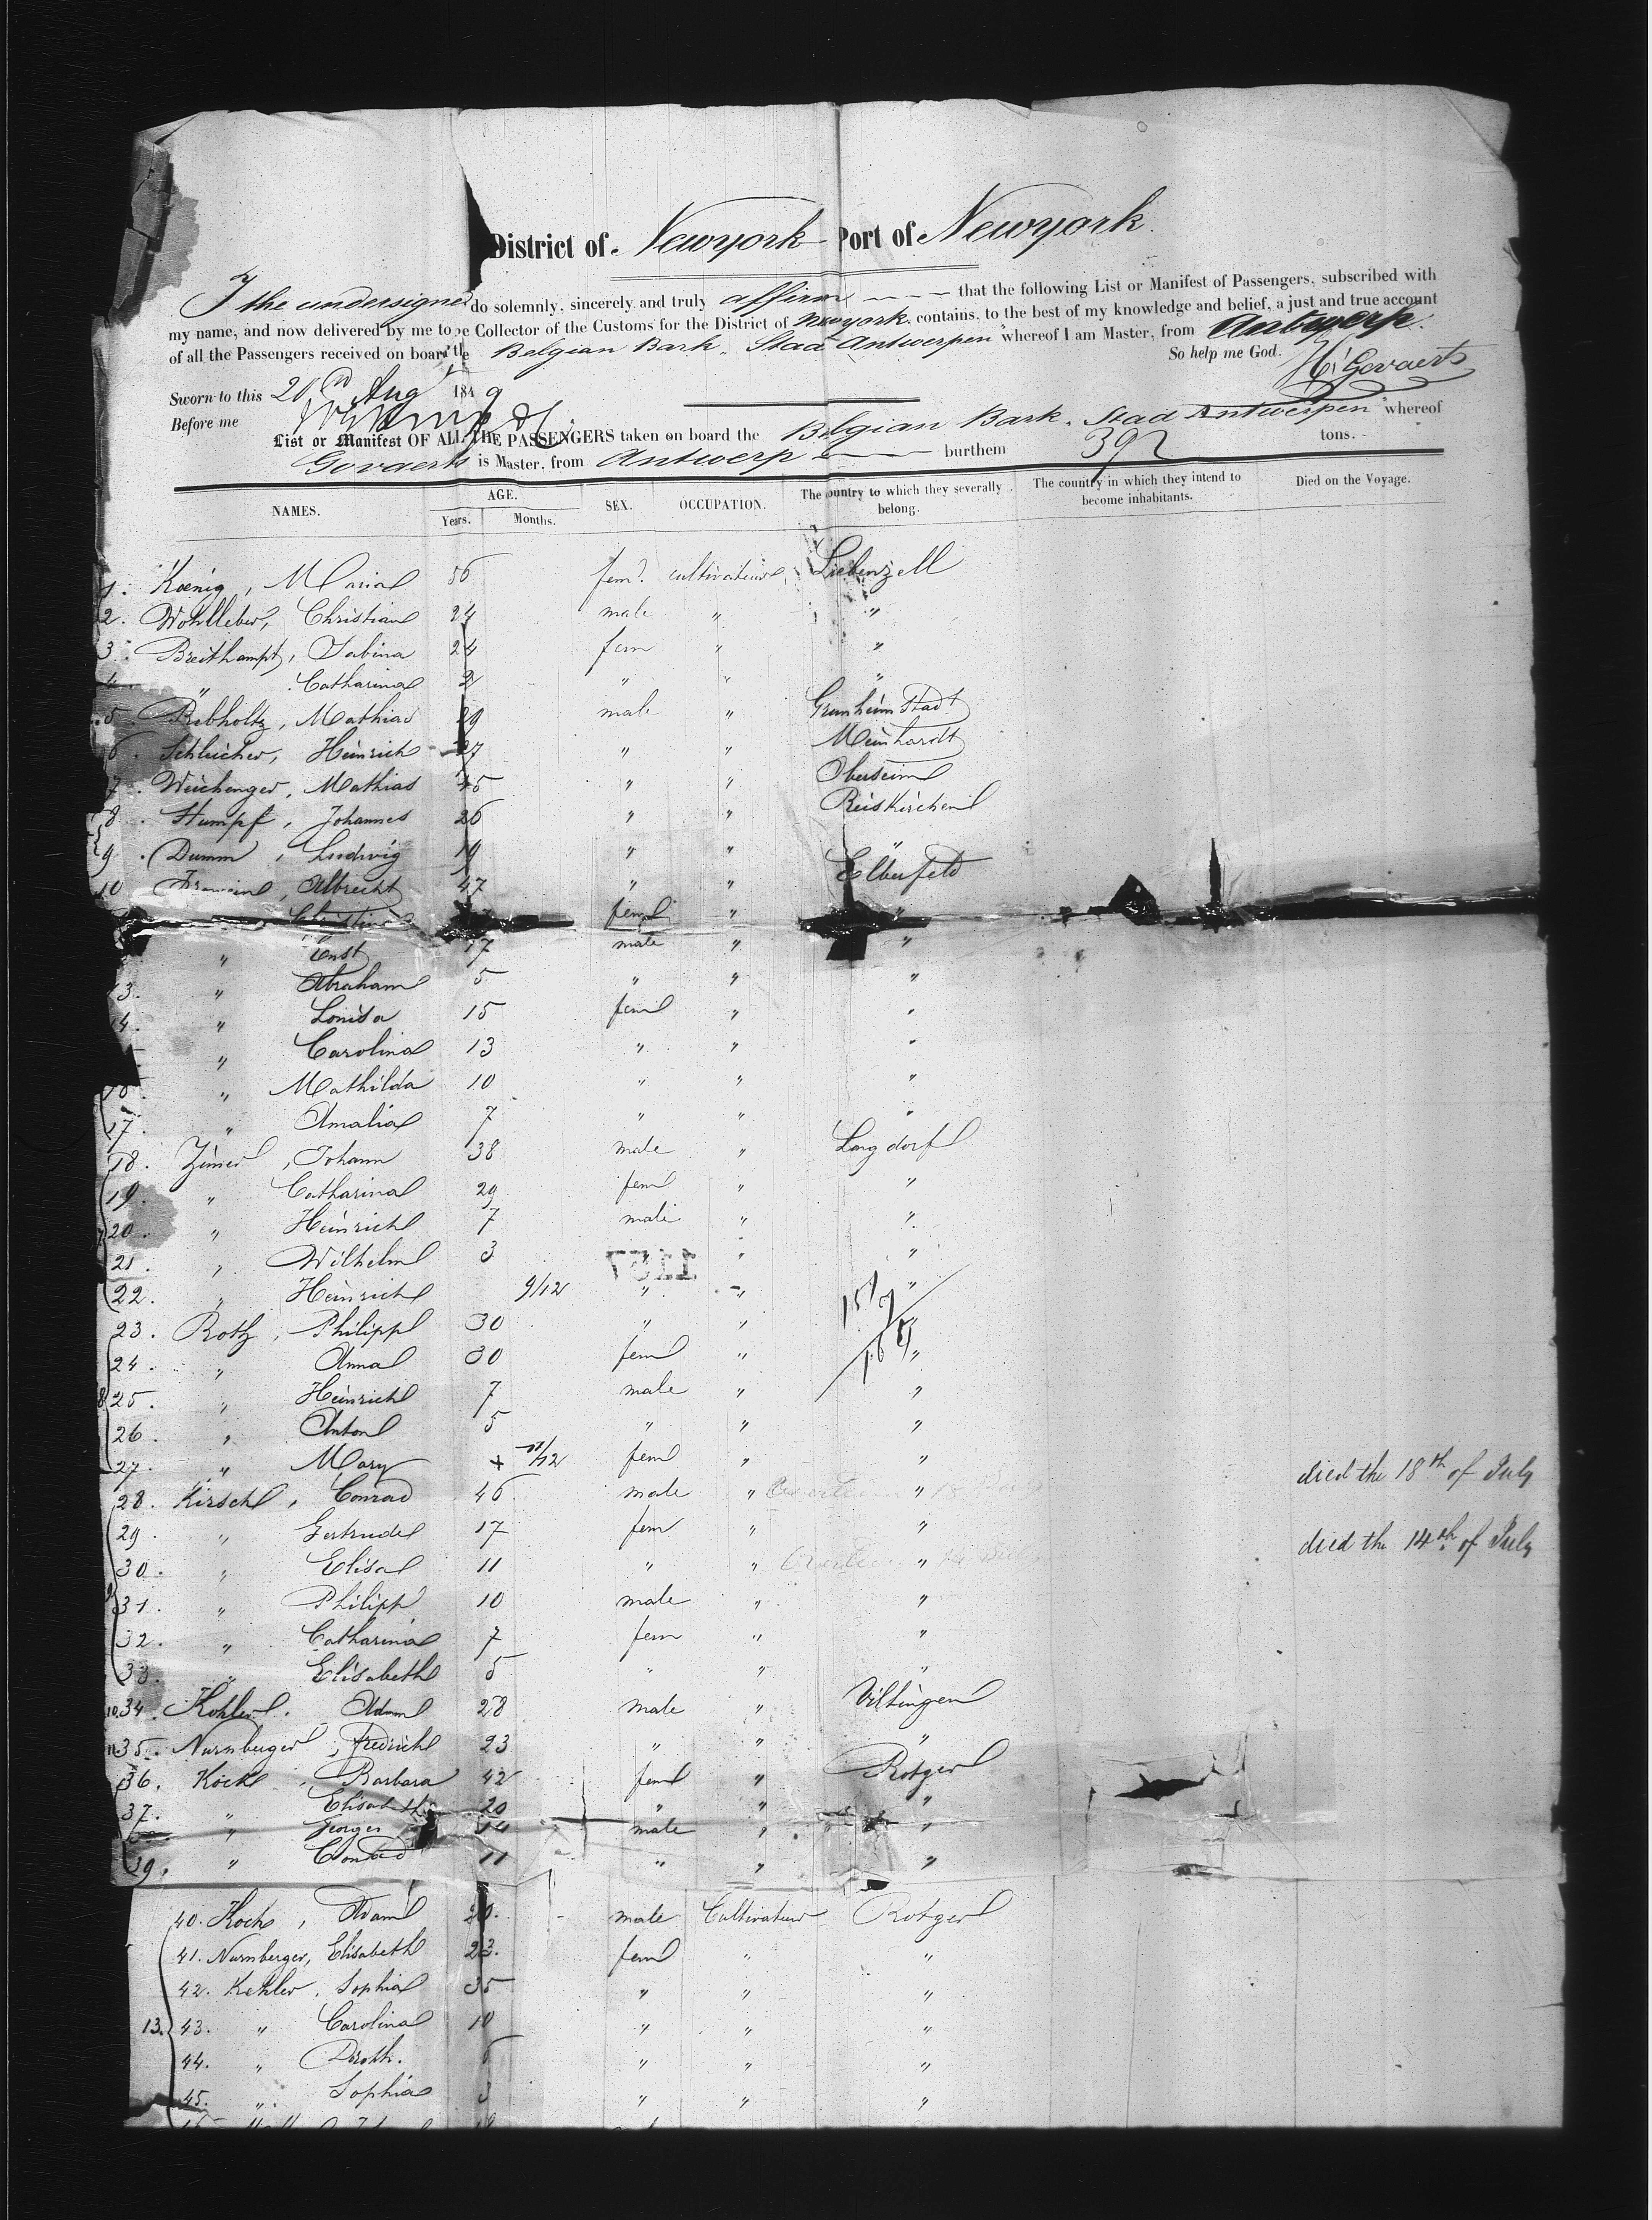 District of Newyork Port of Newyork.
I the undersigned do solemnly, sincerely and truly affirm — that the following List or Manifest of Passengers, subscribed with
my name, and now delivered by me to he Collector of the Customs for the District of Newyork. contains, to the best of my knowledge and belief, a just and true account
of all the Passengers received on board the Belgian Bark „Stad Antwerpen" whereof I am Master, from Antwerp.
So help me God.
H. Govaerts
Sworn to this Aug 1849
Before me
List or Manifest OF ALL THE PASSENGERS taken on board the Belgian Bark „Stad Antwerpen" whereof
Govaerts is Master, from Antwerp — burthem 392 tons.
NAMES. AGE. Years. Months. SEX. OCCUPATION. The country to which they severally belong. The country in which they intend to become inhabitants. Died on the Voyage.
1. Kœnig, Maria 56 fem. cultivateurs Liebenzell
2. Wohlleber, Christian 24 male " "
3. Breithampt, Sabina 24 fem " "
4. " Catharina 2 " " "
5 Rebholtz, Mathias 29 male " Grunheim Stadt
6. Schleicher, Heinrich 27 " " Meinhardt
7. Weichenger, Mathias 45 " "
8. Stumpf, Johannes 26 " " Reiskirchen
9. Dumm, Ludwig 19 " " "
10 Albrecht 47 " " Elberfeld
Christina fem " "
" Ernst 17 male " "
13. " Abraham 5 " " "
14. " Louisa 15 fem " "
" Carolina 13 " " "
16. " Mathilda 10 " " "
17. " Amalia 7 " " "
18. Zimer, Johann 38 male " Langdorf
19. " Catharina 29 fem " "
20. " Heinrich 7 male " "
21. " Wilhelm 3 " " "
1157
22. " Heinrich 9/12 " " "
23. Roth, Philipp 30 " " "
24. " Anna 30 fem " "
25. " Heinrich 7 male " "
26. " Anton 5 " " "
27. " Mary + 11/12 fem " " died the 18th of July
28. Kirsch, Conrad 46 male " "
29. " Gertrude 17 fem " " died the 14th of July
30. " Elisa 11 " " "
31. " Philipp 10 male " "
32. " Catharina 7 fem " "
33. " Elisabeth 5 " " "
10. 34. Kohler. Adam 28 male " Villingen
11. 35. Nurnberger, Fredrich 23 " " "
36. Koch. Barbara 42 fem " Rotger
37. " Elisabeth 20 " " "
" Georges 14 male " "
39. " Conrad 11 " " "
40. Koch, Adam 20. male Cultivateur Rotger
41. Nurnberger, Elisabeth 23. fem " "
42. Kehler, Sophia 35 " " "
13. 43. " Carolina 10 " " "
44. " Doroth. " " "
45. " Sophia 3 " " "